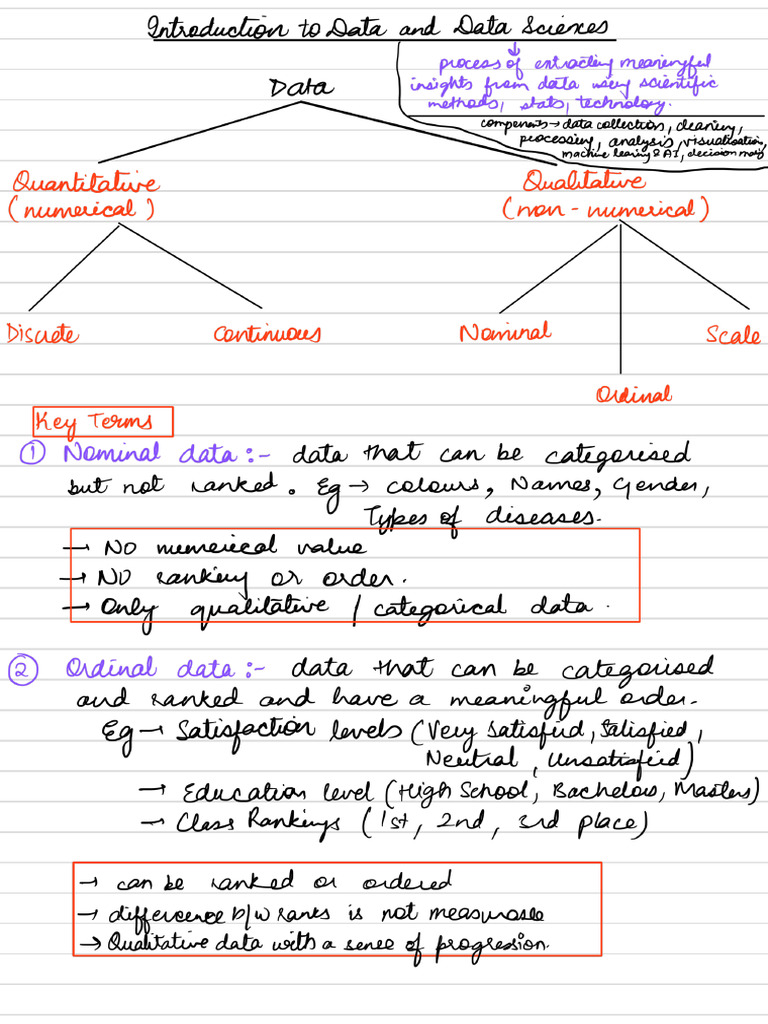 Introduction to Data and Data Sciences
process of extracting meaningful
insights from data using scientific
methods, stats, technology.
components → data collection, cleaning,
processing, analysis, visualisation,
machine learning & AI, decision making
Data
Quantitative
(numerical)
Qualitative
(non-numerical)
Discrete
Continuous
Nominal
Scale
Ordinal
Key Terms
① Nominal data :- data that can be categorised
but not ranked. Eg → colours, Names, Gender,
Types of diseases.
→ No numerical value
→ No ranking or order.
→ Only qualitative / categorical data.
② Ordinal data :- data that can be categorised
and ranked and have a meaningful order.
Eg → Satisfaction levels (Very satisfied, Satisfied,
Neutral, Unsatisfied)
→ Education level (High School, Bachelors, Masters)
→ Class Rankings (1st, 2nd, 3rd place)
→ can be ranked or ordered
→ difference b/w ranks is not measurable
→ Qualitative data with a sense of progression.